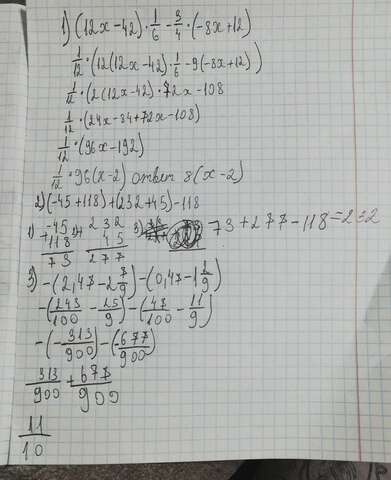 1) (12x-42)·1/6-3/4·(-8x+12)
1/12·(12(12x-42)·1/6-9(-8x+12))
1/12·(2(12x-42)·72x-108
1/12·(24x-84+72x-108)
1/12·(96x-192)
1/12·96(x-2) ответ 8(x-2)
2) (-45+118)+(232+45)-118
1) -45 2) 232 3) 73+277-118=232
+118 45
73 277
3) -(2,47-2 7/9)-(0,47-1 2/9)
-(243/100-25/9)-(47/100-11/9)
-(-313/900)-(-677/900)
313/900+677/900
11/10